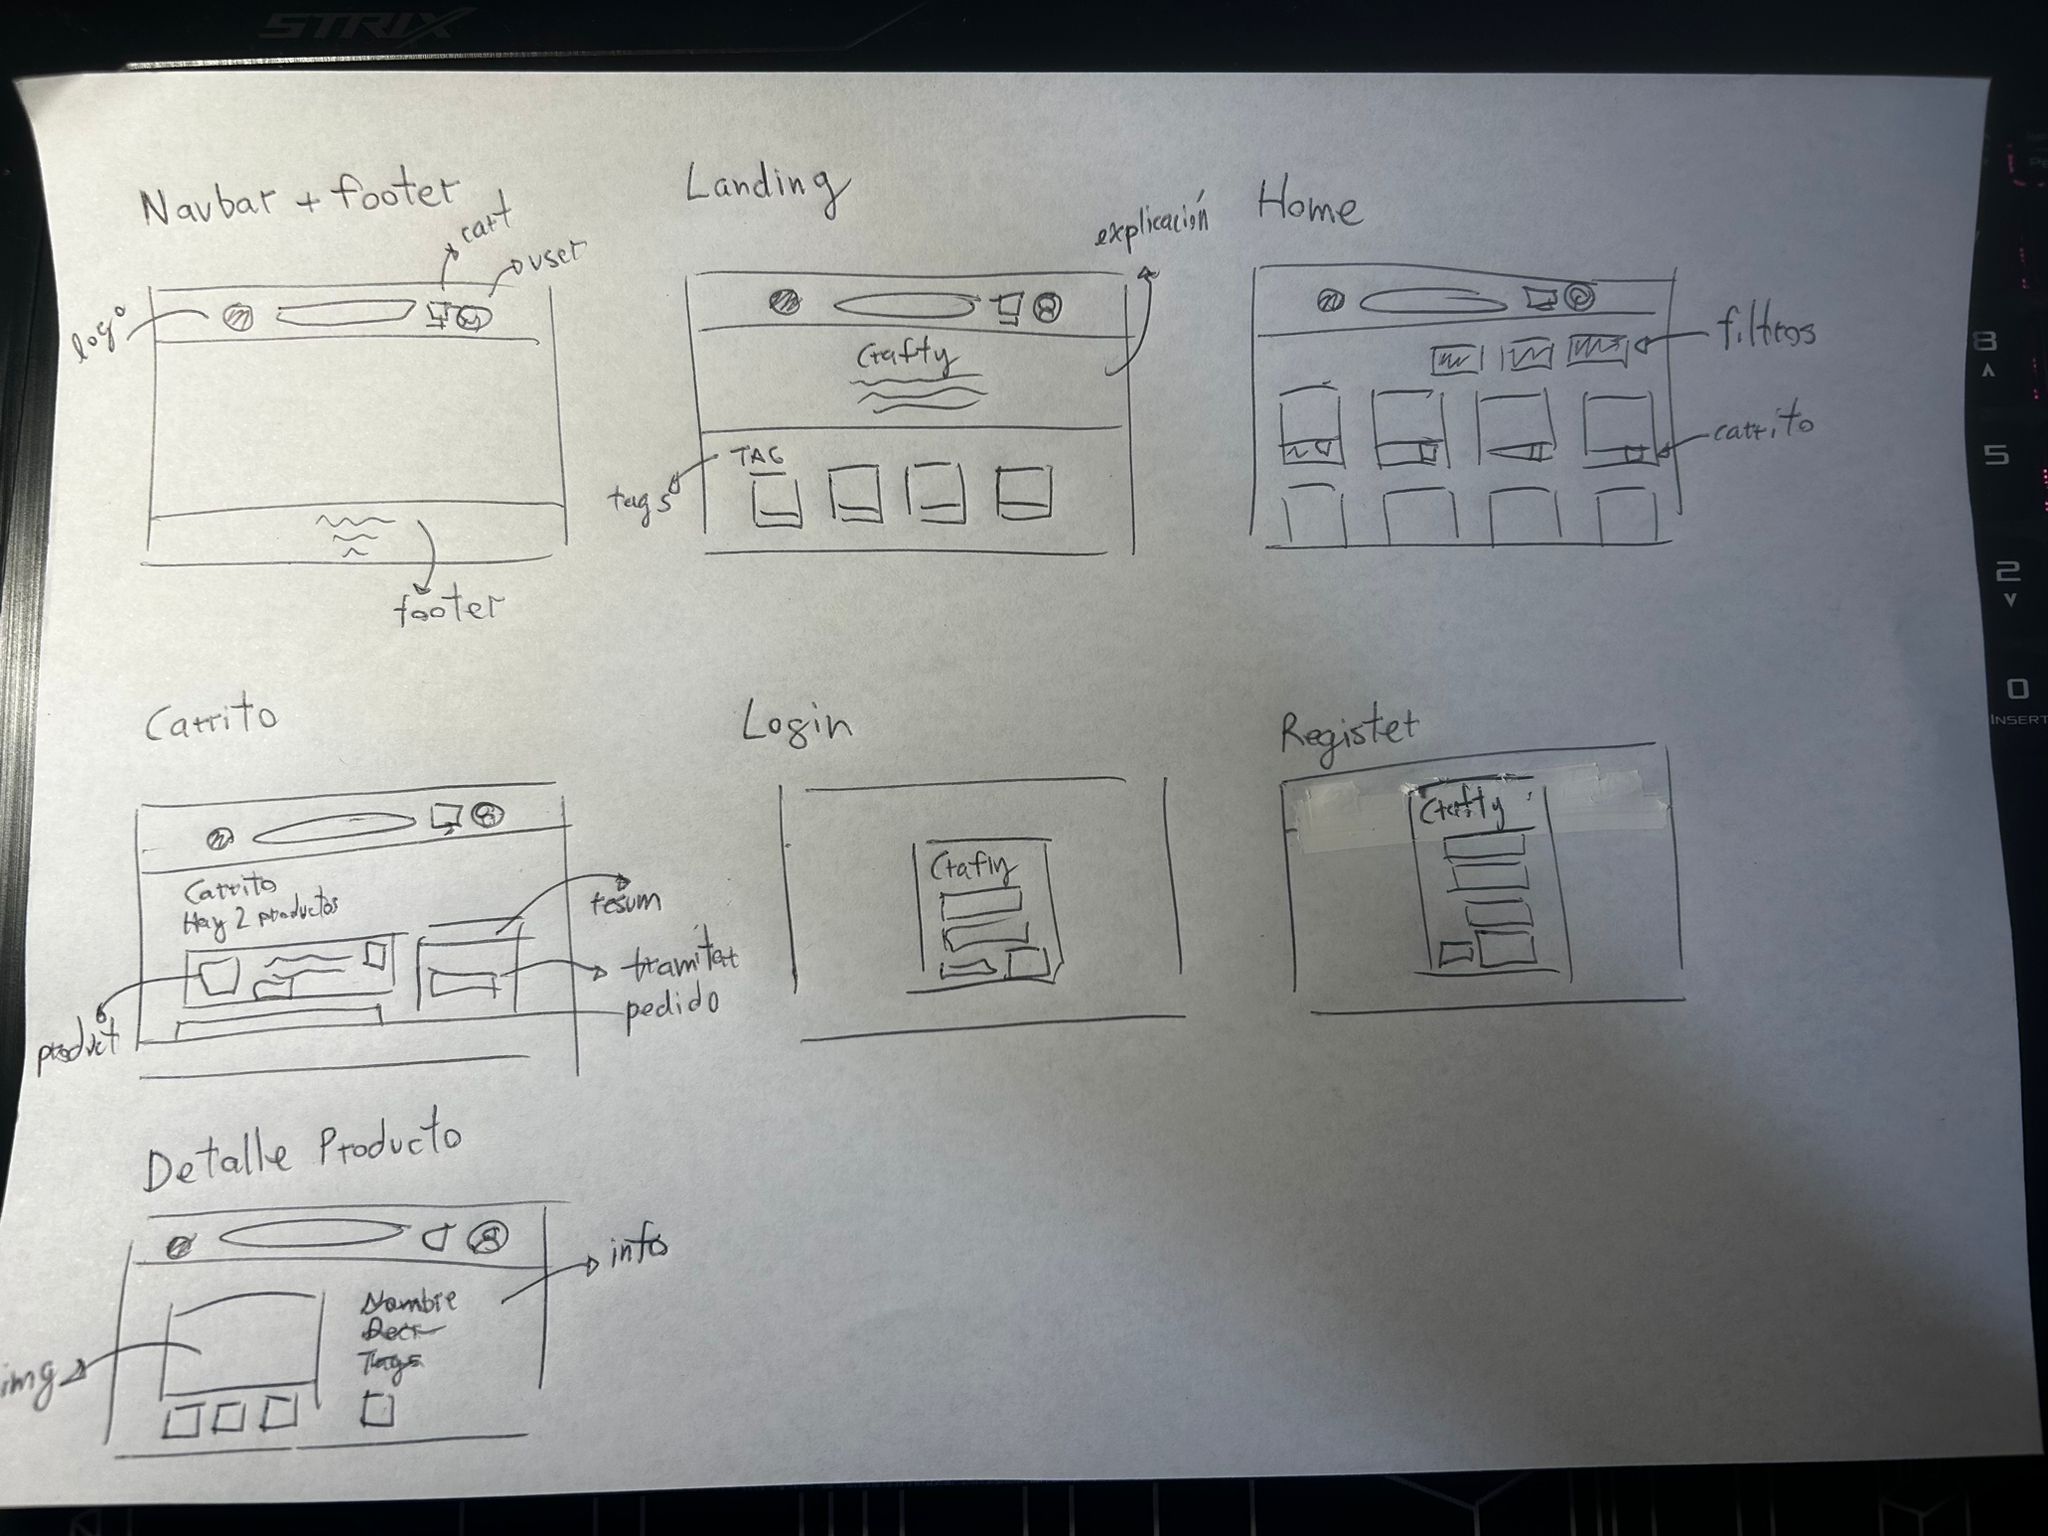 STRIX
Navbar + footer
cart
user
logo
footer
Landing
explicación
Crafty
TAG
tags
Home
filtros
carrito
8
5
2
0
INSERT
Carrito
Carrito
Hay 2 productos
resum
tramitar
pedido
product
Login
Crafty
Register
Crafty
Detalle Producto
info
Nombre
Decr
Tags
img